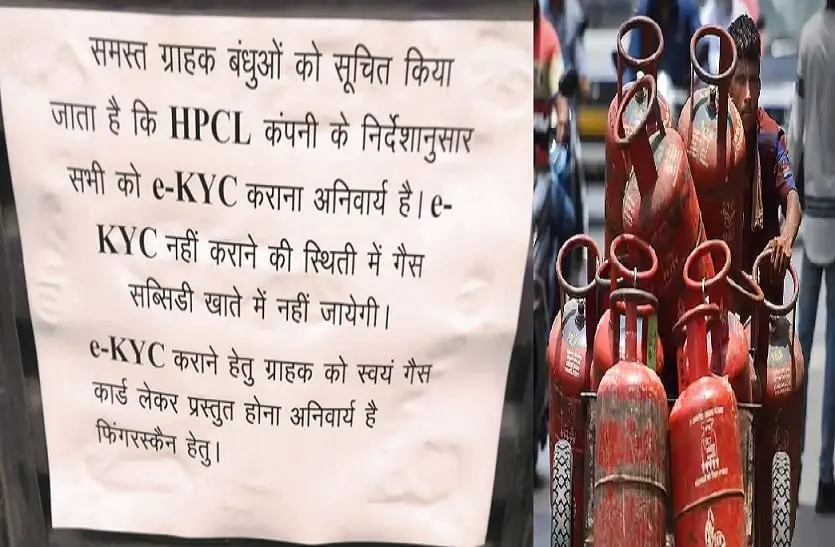 समस्त ग्राहक बंधुओं को सूचित किया
जाता है कि HPCL कंपनी के निर्देशानुसार
सभी को e-KYC कराना अनिवार्य है। e-
KYC नहीं कराने की स्थिती में गैस
सब्सिडी खाते में नहीं जायेगी।
e-KYC कराने हेतु ग्राहक को स्वयं गैस
कार्ड लेकर प्रस्तुत होना अनिवार्य है
फिंगरस्कैन हेतु।